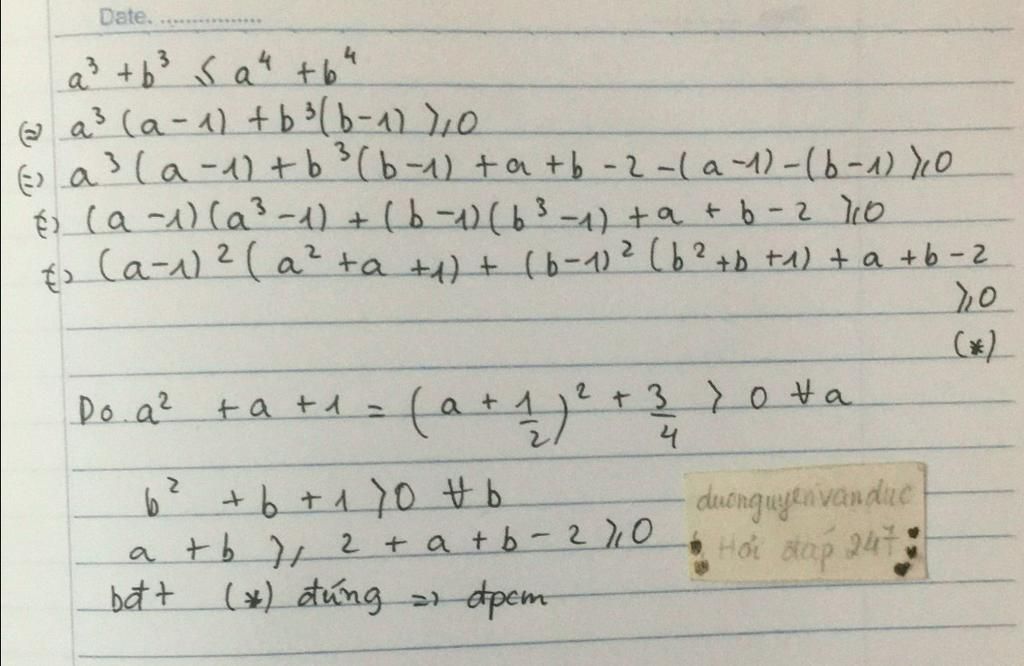 Date. ...............
a³ + b³ ≤ a⁴ + b⁴
(=) a³(a-1) + b³(b-1) ≥ 0
(=) a³(a-1) + b³(b-1) + a + b - 2 - (a-1) - (b-1) ≥ 0
(=) (a-1)(a³-1) + (b-1)(b³-1) + a + b - 2 ≥ 0
(=) (a-1)²(a² + a + 1) + (b-1)²(b² + b + 1) + a + b - 2
≥ 0
(*)
Do. a² + a + 1 = (a + 1/2)² + 3/4 > 0 ∀ a
b² + b + 1 > 0 ∀ b
a + b ≥, 2 + a + b - 2 ≥ 0
bđt (*) đúng => đpcm
duongnguyenvanduc
Hỏi đáp 247